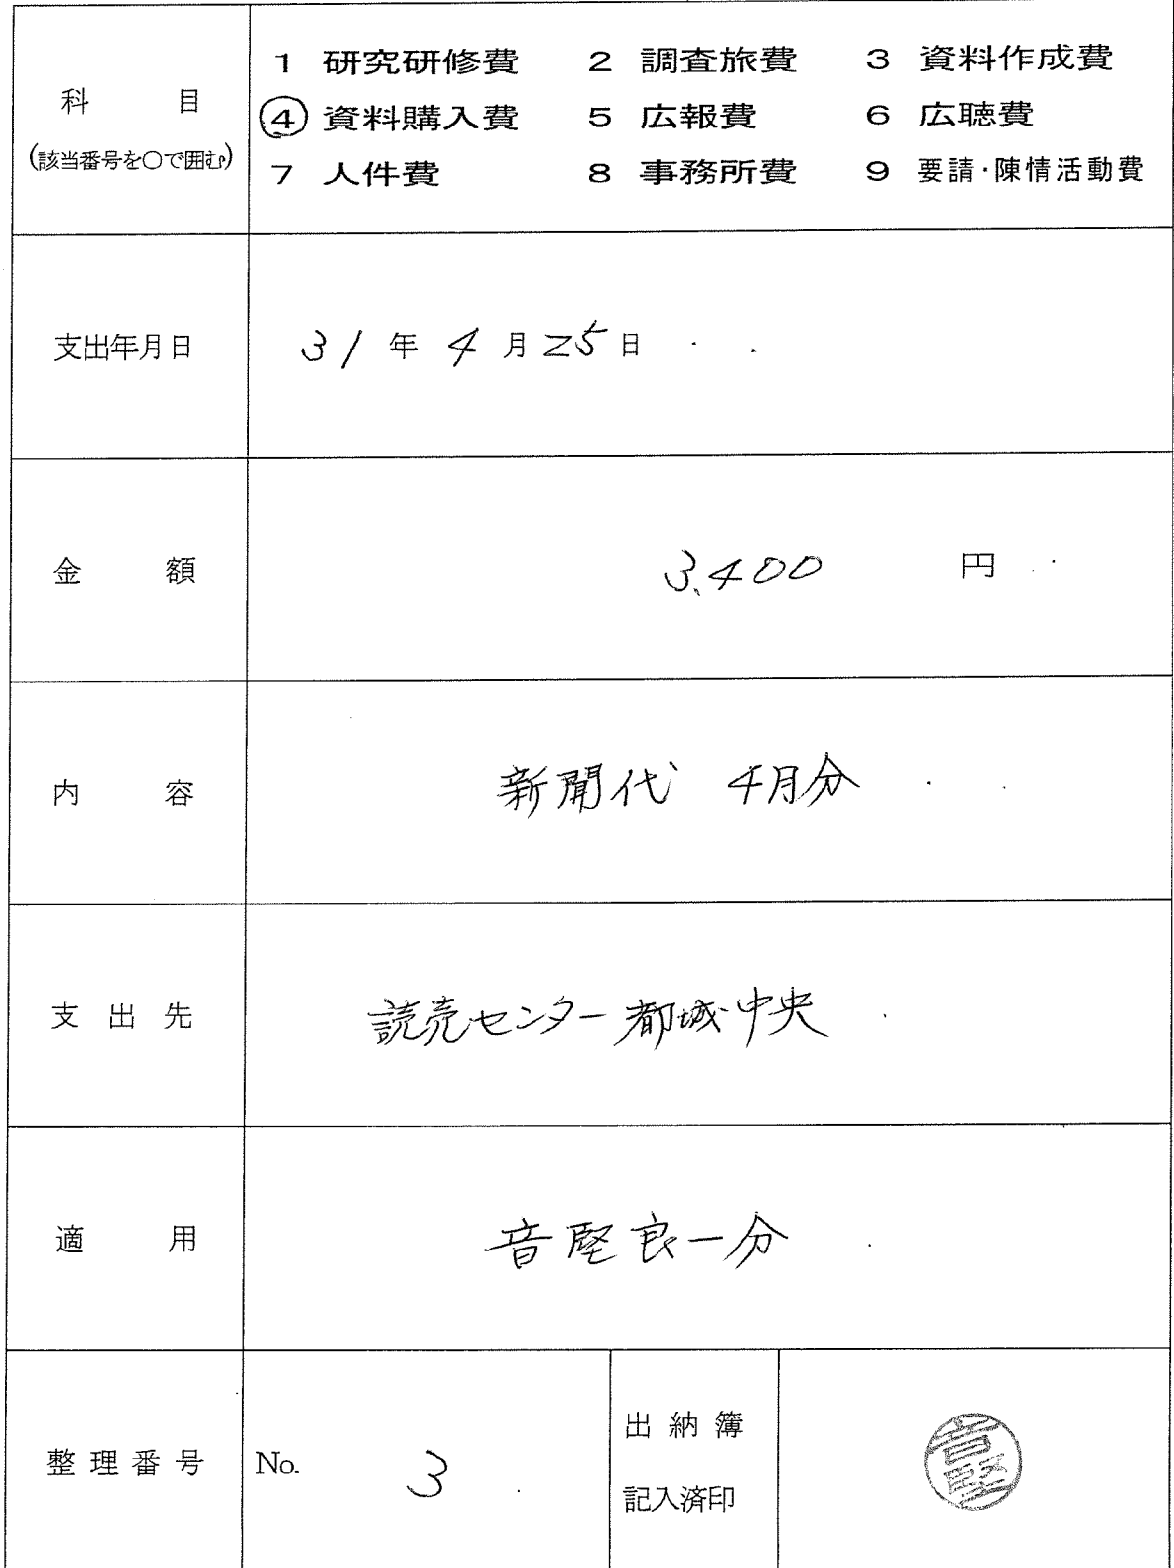 科目
(該当番号を○で囲む)
1 研究研修費 2 調査旅費 3 資料作成費
④ 資料購入費 5 広報費 6 広聴費
7 人件費 8 事務所費 9 要請・陳情活動費
支出年月日 31年4月25日
金額 3,400 円
内容 新聞代 4月分
支出先 読売センター都城中央
適用 音堅良一分
整理番号 No. 3
出納簿
記入済印
音堅